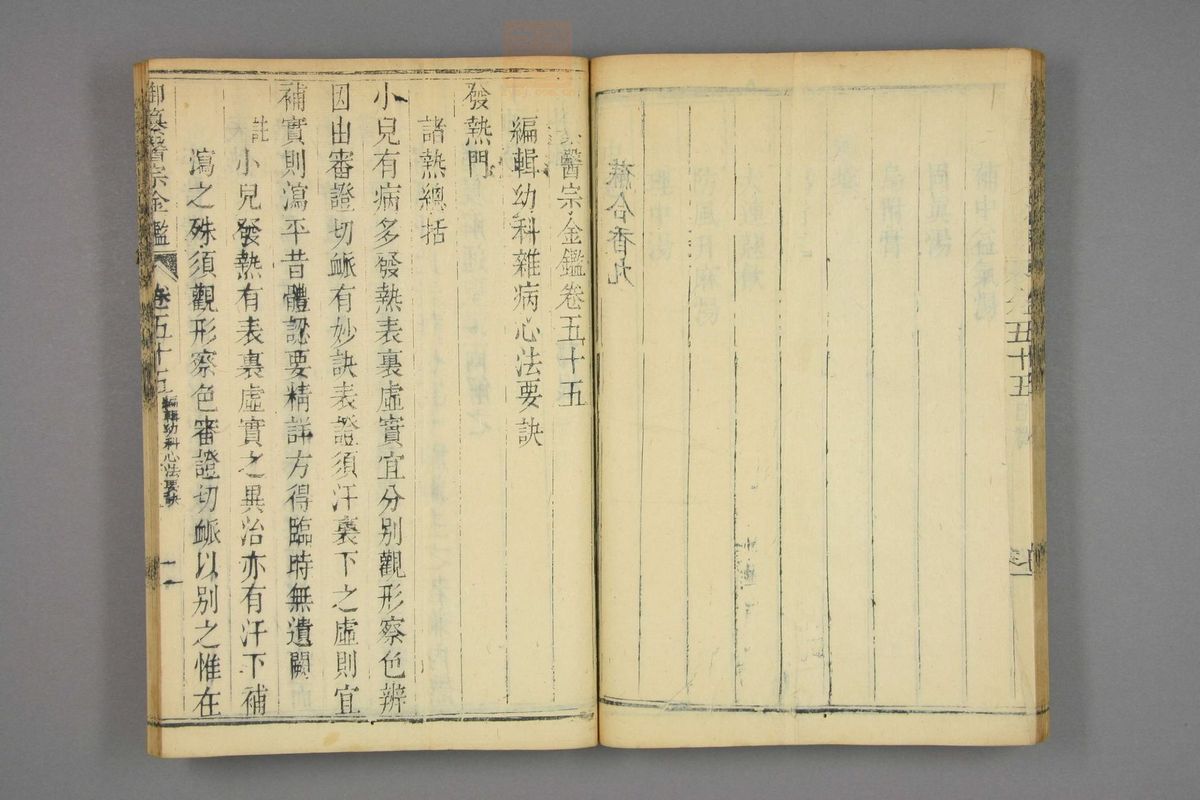 蘓合香丸
五十五
醫宗金鑑卷五十五
編輯幼科雜病心法要訣
發熱門
諸熱總括
小兒有病多發熱表裏虛實宜分別觀形察色辨
因由審證切衇有妙訣表證須汗裏下之虛則宜
補實則瀉平昔體認要精詳方得臨時無遺闕
註小兒發熱有表裏虛實之異治亦有汗下補
瀉之殊須觀形察色審證切衇以別之惟在
御纂醫宗金鑑
卷五十五
編輯幼科心法要訣
一